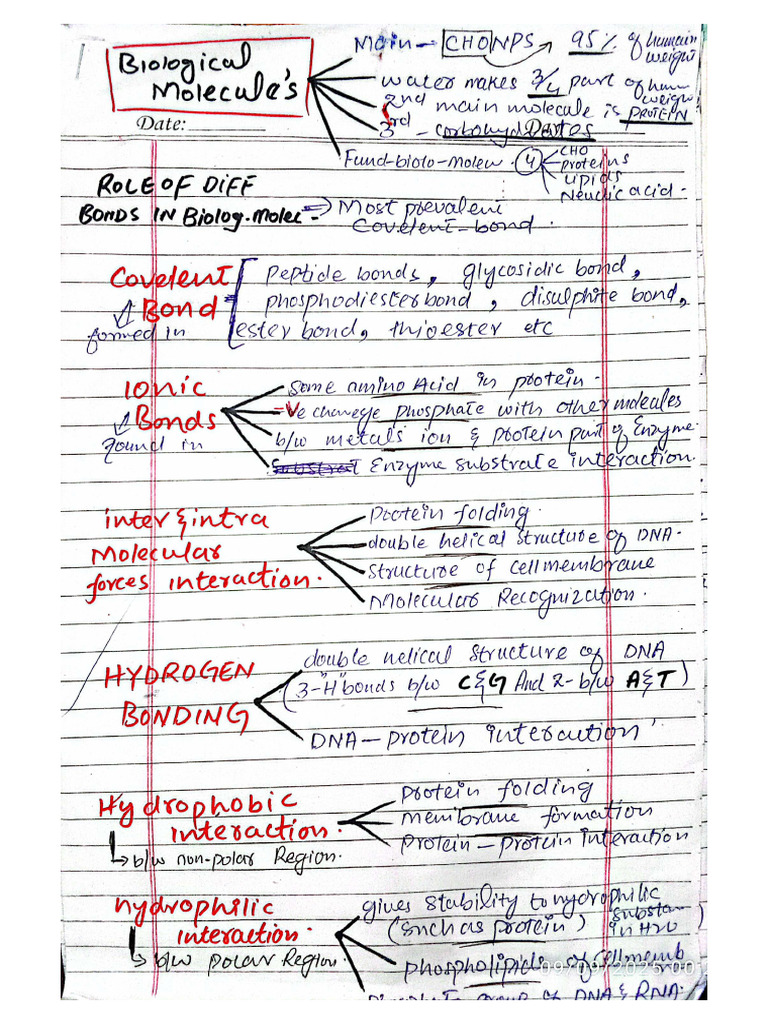 1
Biological
Molecule's
Date:
Main → CHONPS 95% of humain weight
water makes 3/4 part of hum weight
2nd main molecule is PROTEIN
3rd - carbohydDrates
Fund-biolo-molew. 4 CHO
proteins
Lipids
Neuclic acid.
ROLE OF DIFF
BONDS IN Biolog.molec - ⇒ Most prevalent
Covelent-bond.
Covelent Bond =
formed in
Peptide bonds, glycosidic bond,
phosphodiester bond, disulphite bond,
ester bond, thioester etc
Ionic
Bonds
found in
Some amino Acid in protein.
=ve charege phosphate with other molecules
b/w metals ion & protein part of Enzyme.
Enzyme substrate interaction.
inter & intra
Molecular
forces interaction.
Protein folding.
double helical structure of DNA.
Structure of cell membrane
Molecular Recognization.
HYDROGEN
BONDING
double helical structure of DNA
(3-"H" bonds b/w C&G And 2- b/w A&T)
DNA - protein interaction
Hydrophobic
interaction.
b/w non-polar Region.
Protein folding
membrane formation
Protein - protein interaction
hydrophilic
interaction.
b/w polar Region.
gives stability to hydrophilic
(such as protein) substan in H2O
phospholipids of cell memb
09/09/2025 00
group of DNA & RNA.